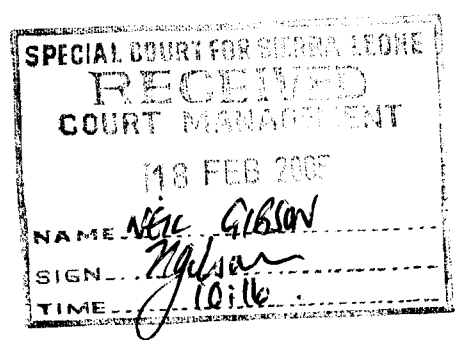 SPECIAL COURT FOR SIERRA LEONE
RECEIVED
COURT MANAGEMENT
18 FEB 2005
NAME NEIL GIBSON
SIGN NGibson
TIME 10:16